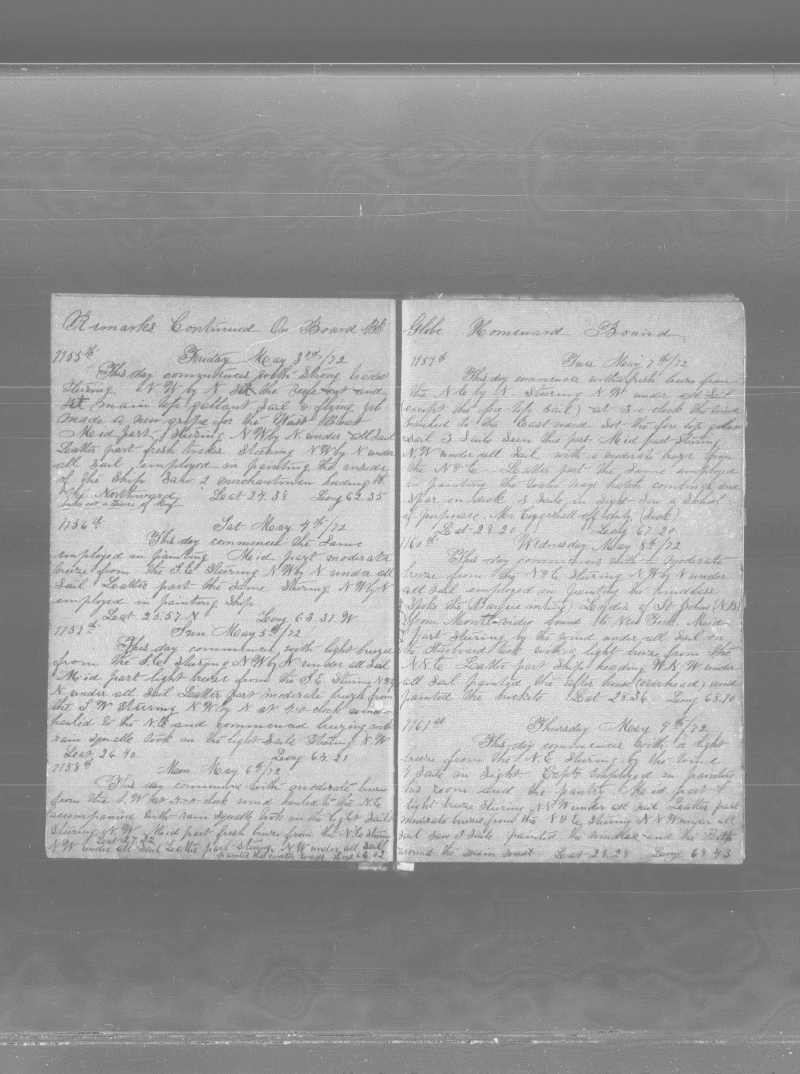 Remarks Continued On Board
1155th Friday May 3rd/72
This day commences with strong trades
Steering N W by N set the reefs out and
set main top gallant sail & flying jib
made a new gripe for the Waist Boat
Mid part Steering N W by N under all Sail
Leatter part fresh trades Steering N W by N under
all sail employed in painting the inside
of the Ship Saw 2 merchantmen heading to
the Northward Lat 24.38 Long 62.35
1156th Sat May 4th/72
This day commences the Same
employed in painting Mid part moderate
breeze from the S.E. Steering N W by N under all
Sail Leatter part the Same Steering N W by N
employed in painting Ship
Lat 25.57 N Long 63.31 W
1157th Sun May 5th/72
This day commences with light breeze
from the S.E. Steering N W by N under all Sail
Mid part light breeze from the S.E. Steering N W by
N. under all Sail Leatter part moderate breeze from
the S W Steering N W by N at clock wind
hauled to the N.E. and commenced breezing with
rain squalls took in the light Sails Steering N W
Lat 26.40 Long 64.21
1158th Mon May 6th/72
This day commences with moderate breeze
from the S.W. at clock wind hauled to the N.E.
accompanied with rain squalls took in the light Sails
Steering N. W. Mid part fresh breeze from the N.E. Steering
Lat 27.22
N W under all Sail Leatter part Steering N W under all Sail
painted the water ways Long
Globe Homeward Bound
1159th Tues May 7th/72
This day commences with fresh breeze from
the N.E. by N. Steering N. W. under all Sail
(except the fore top Sail) at 3-0 clock the wind
hauled to the Eastward Set the fore top gallant
sail 3 Sails Seen this part Mid part Steering
N W under all Sail with a moderate breeze from
the N & E Leatter part the Same employed
in painting the water ways hatch combings and
Spar on deck 3 Sails in Sight Saw a School
of porpoise. Mr Coggeshall off duty (Sick)
Lat 28.20 Long 67.20
1160th Wednesday May 8th/72
This day commences with a moderate
breeze from the N & E Steering N W by N under
all Sail employed in painting the windlass
Spoke the Barque Lydia of St Johns N.B.
from Montevideo bound to New York Mid
part Steering by the wind under all Sail on
the Starboard tack with a light breeze from the
N.N.E. Leatter part Ship heading W N W under
all Sail painted the after house (overhead) and
painted the buckets Lat 28.36 Long 68.10
1161th Thursday May 9th/72
This day commences with a light
breeze from the N.E. Steering by the wind
Sails in Sight. Capt employed in painting
his room and the pantry Mid part
light breeze Steering N & W under all Sail Leatter part
moderate breeze from the N & E Steering N & W under all
Sail Saw 3 Sails painted the windlass and the Bitts
around the main mast Lat 28.28 Long 68.43